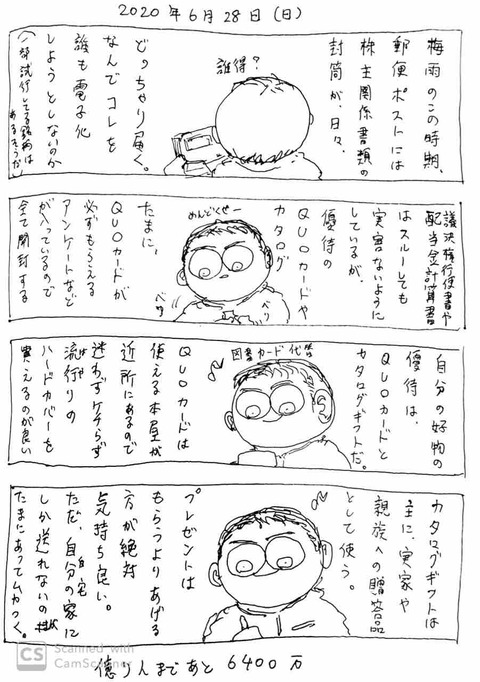 2020年6月28日(日)
梅雨のこの時期、
郵便ポストには
株主関係書類の
封筒が、日々、
誰得?
どっちゃり届く。
なんでコレを
誰も電子化
しようとしないのか
(一部試行してる銘柄は
あるそうだ)
議決権行使書や
配当金計算書
はスルーしても
実害ないように
しているが、
優待の
QUOカードや
カタログ
めんどくせー
ベリ
ベリ
たまに、
QUOカードが
必ずもらえる
アンケートなど
が入っているので
全て開封する
自分の好物の
優待は、
QUOカードと
カタログギフトだ。
図書カード代替
QUOカードは
使える本屋が
近所にあるので
迷わずケチらず
流行りの
ハードカバーを
買えるのが良い
カタログギフトは
主に、実家や
親族への贈答品
として使う。
プレゼントは
もらうよりあげる
方が絶対
気持ち良い。
ただ、自分の家に
自宅
しか送れないの
たまにあってムカつく。
億り人まであと 6400万
CS Scanned with
CamScanner